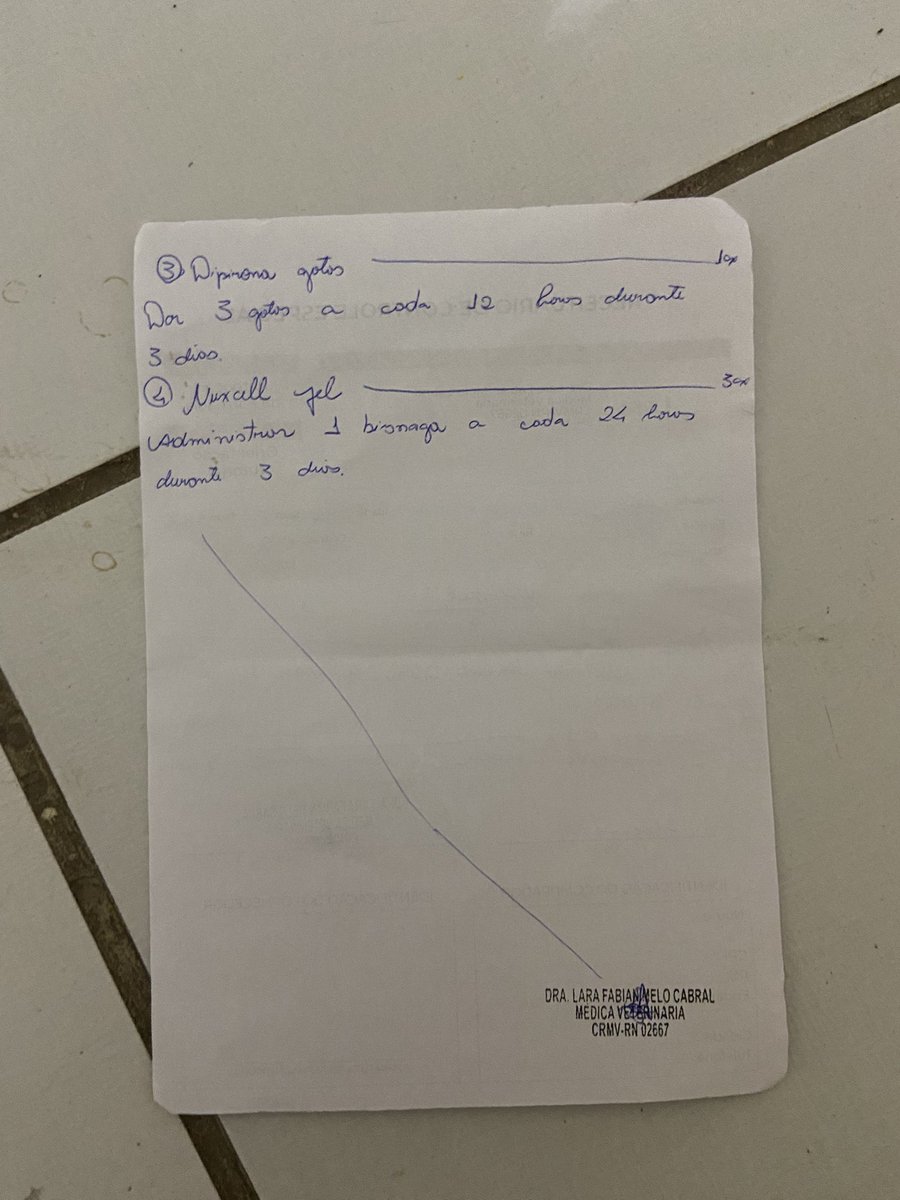 ③ Dipirona gotas 1cx
Dar 3 gotas a cada 12 horas durante
3 dias.
④ Nuxcell gel 3cx
Administrar 1 bisnaga a cada 24 horas
durante 3 dias.
DRA. LARA FABIAN MELO CABRAL
MEDICA VETERINARIA
CRMV-RN 02667